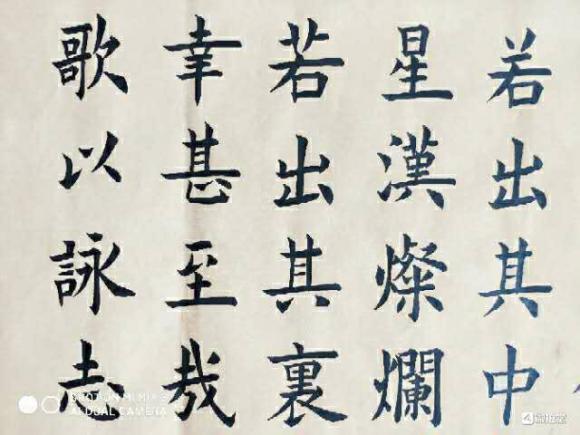 若出其中
星漢燦爛
若出其裏
幸甚至哉
歌以詠志
SHOT ON MI MIX 2S
AI DUAL CAMERA